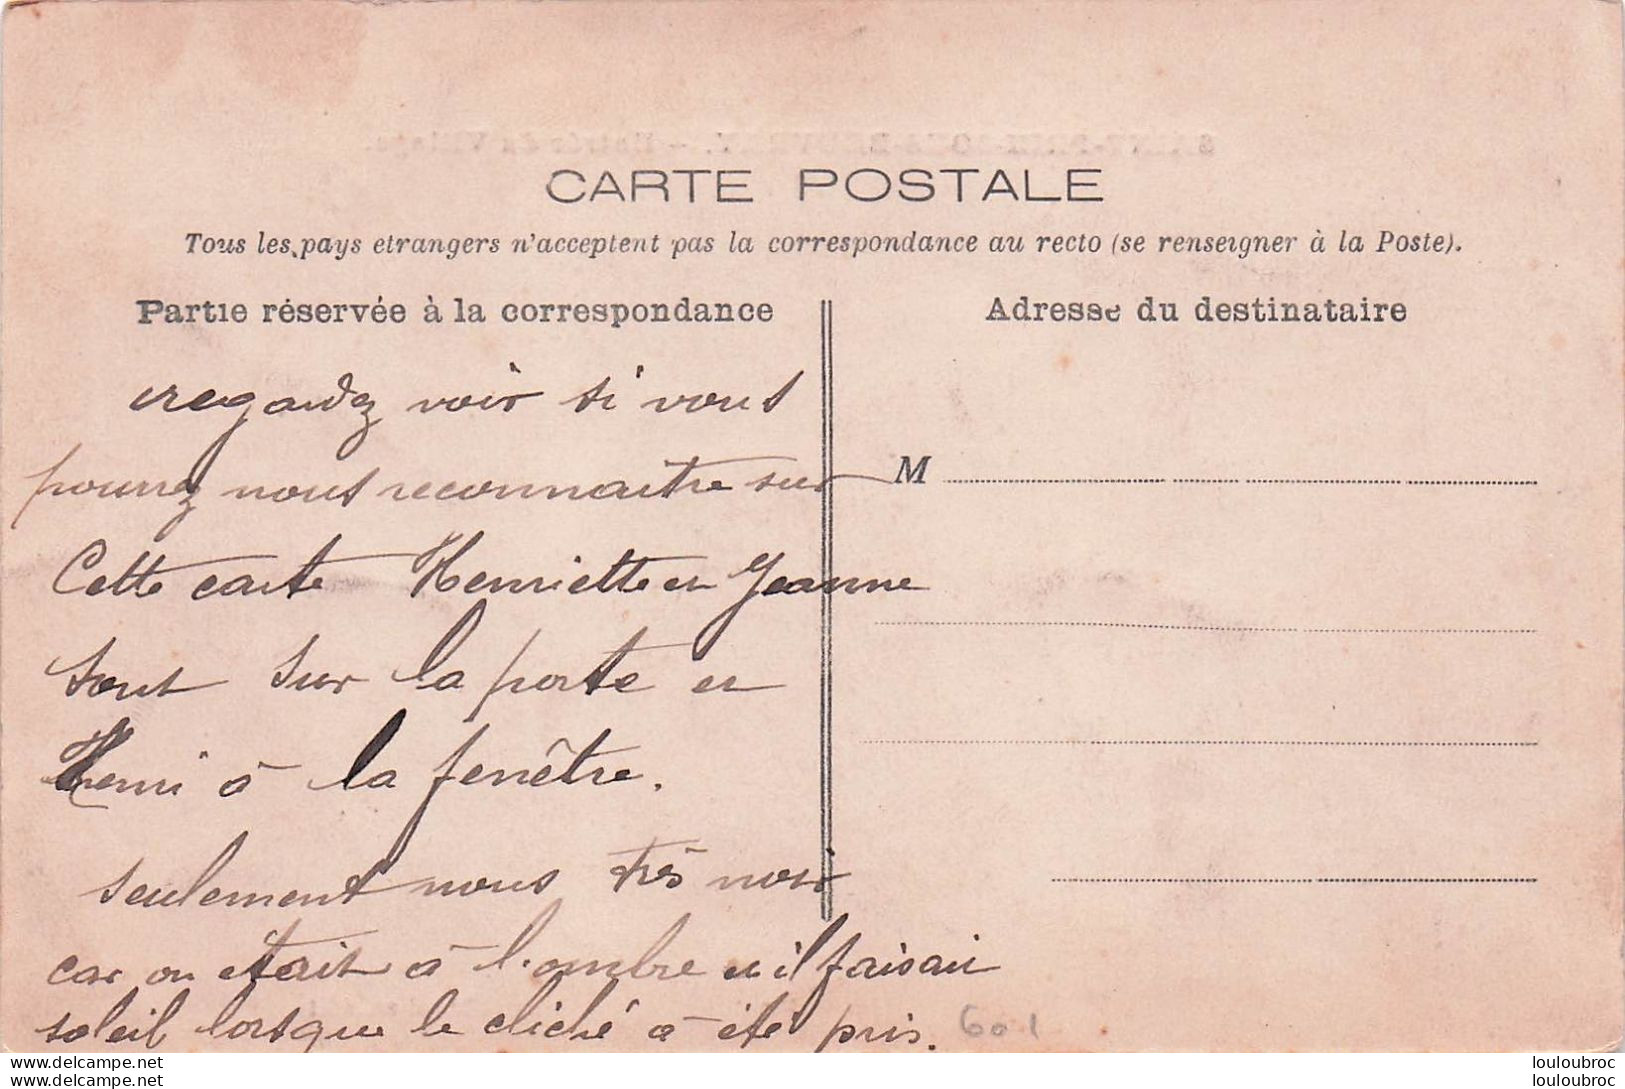 CARTE POSTALE
Tous les pays etrangers n'acceptent pas la correspondance au recto (se renseigner à la Poste).
Partie réservée à la correspondance
regardez voir si vous
pourrez nous reconnaitre sur
Cette carte Henriette et Jeanne
sont sur la porte et
Henri à la fenêtre.
seulement nous très noir
car on était à l'ombre et il faisait
soleil lorsque le cliché a été pris.
601
Adresse du destinataire
M
louloubroc
louloubroc